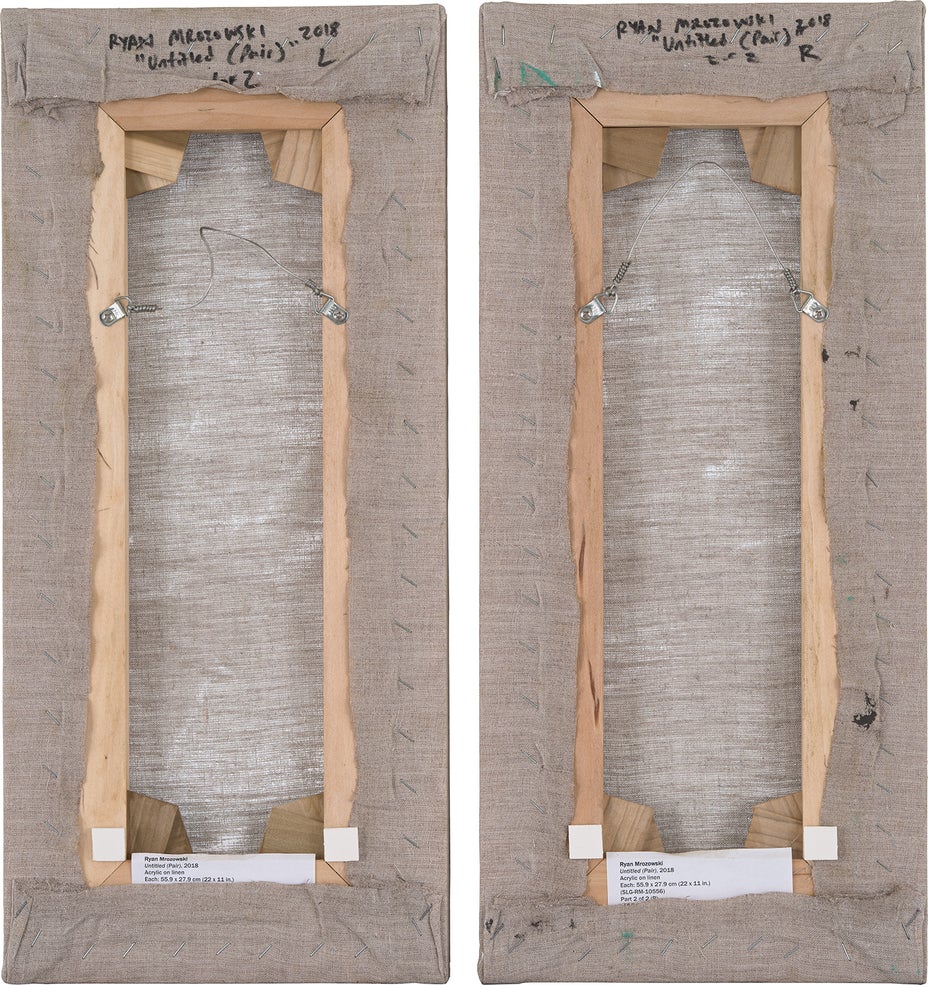 RYAN MROZOWSKI 2018
"Untitled (Pair)" L
1 of 2
Ryan Mrozowski
Untitled (Pair), 2018
Acrylic on linen
Each: 55.9 x 27.9 cm (22 x 11 in.)
RYAN MROZOWSKI 2018
"Untitled (Pair)" R
2 of 2
Ryan Mrozowski
Untitled (Pair), 2018
Acrylic on linen
Each: 55.9 x 27.9 cm (22 x 11 in.)
(SLG-RM-10556)
Part 2 of 2 (R)